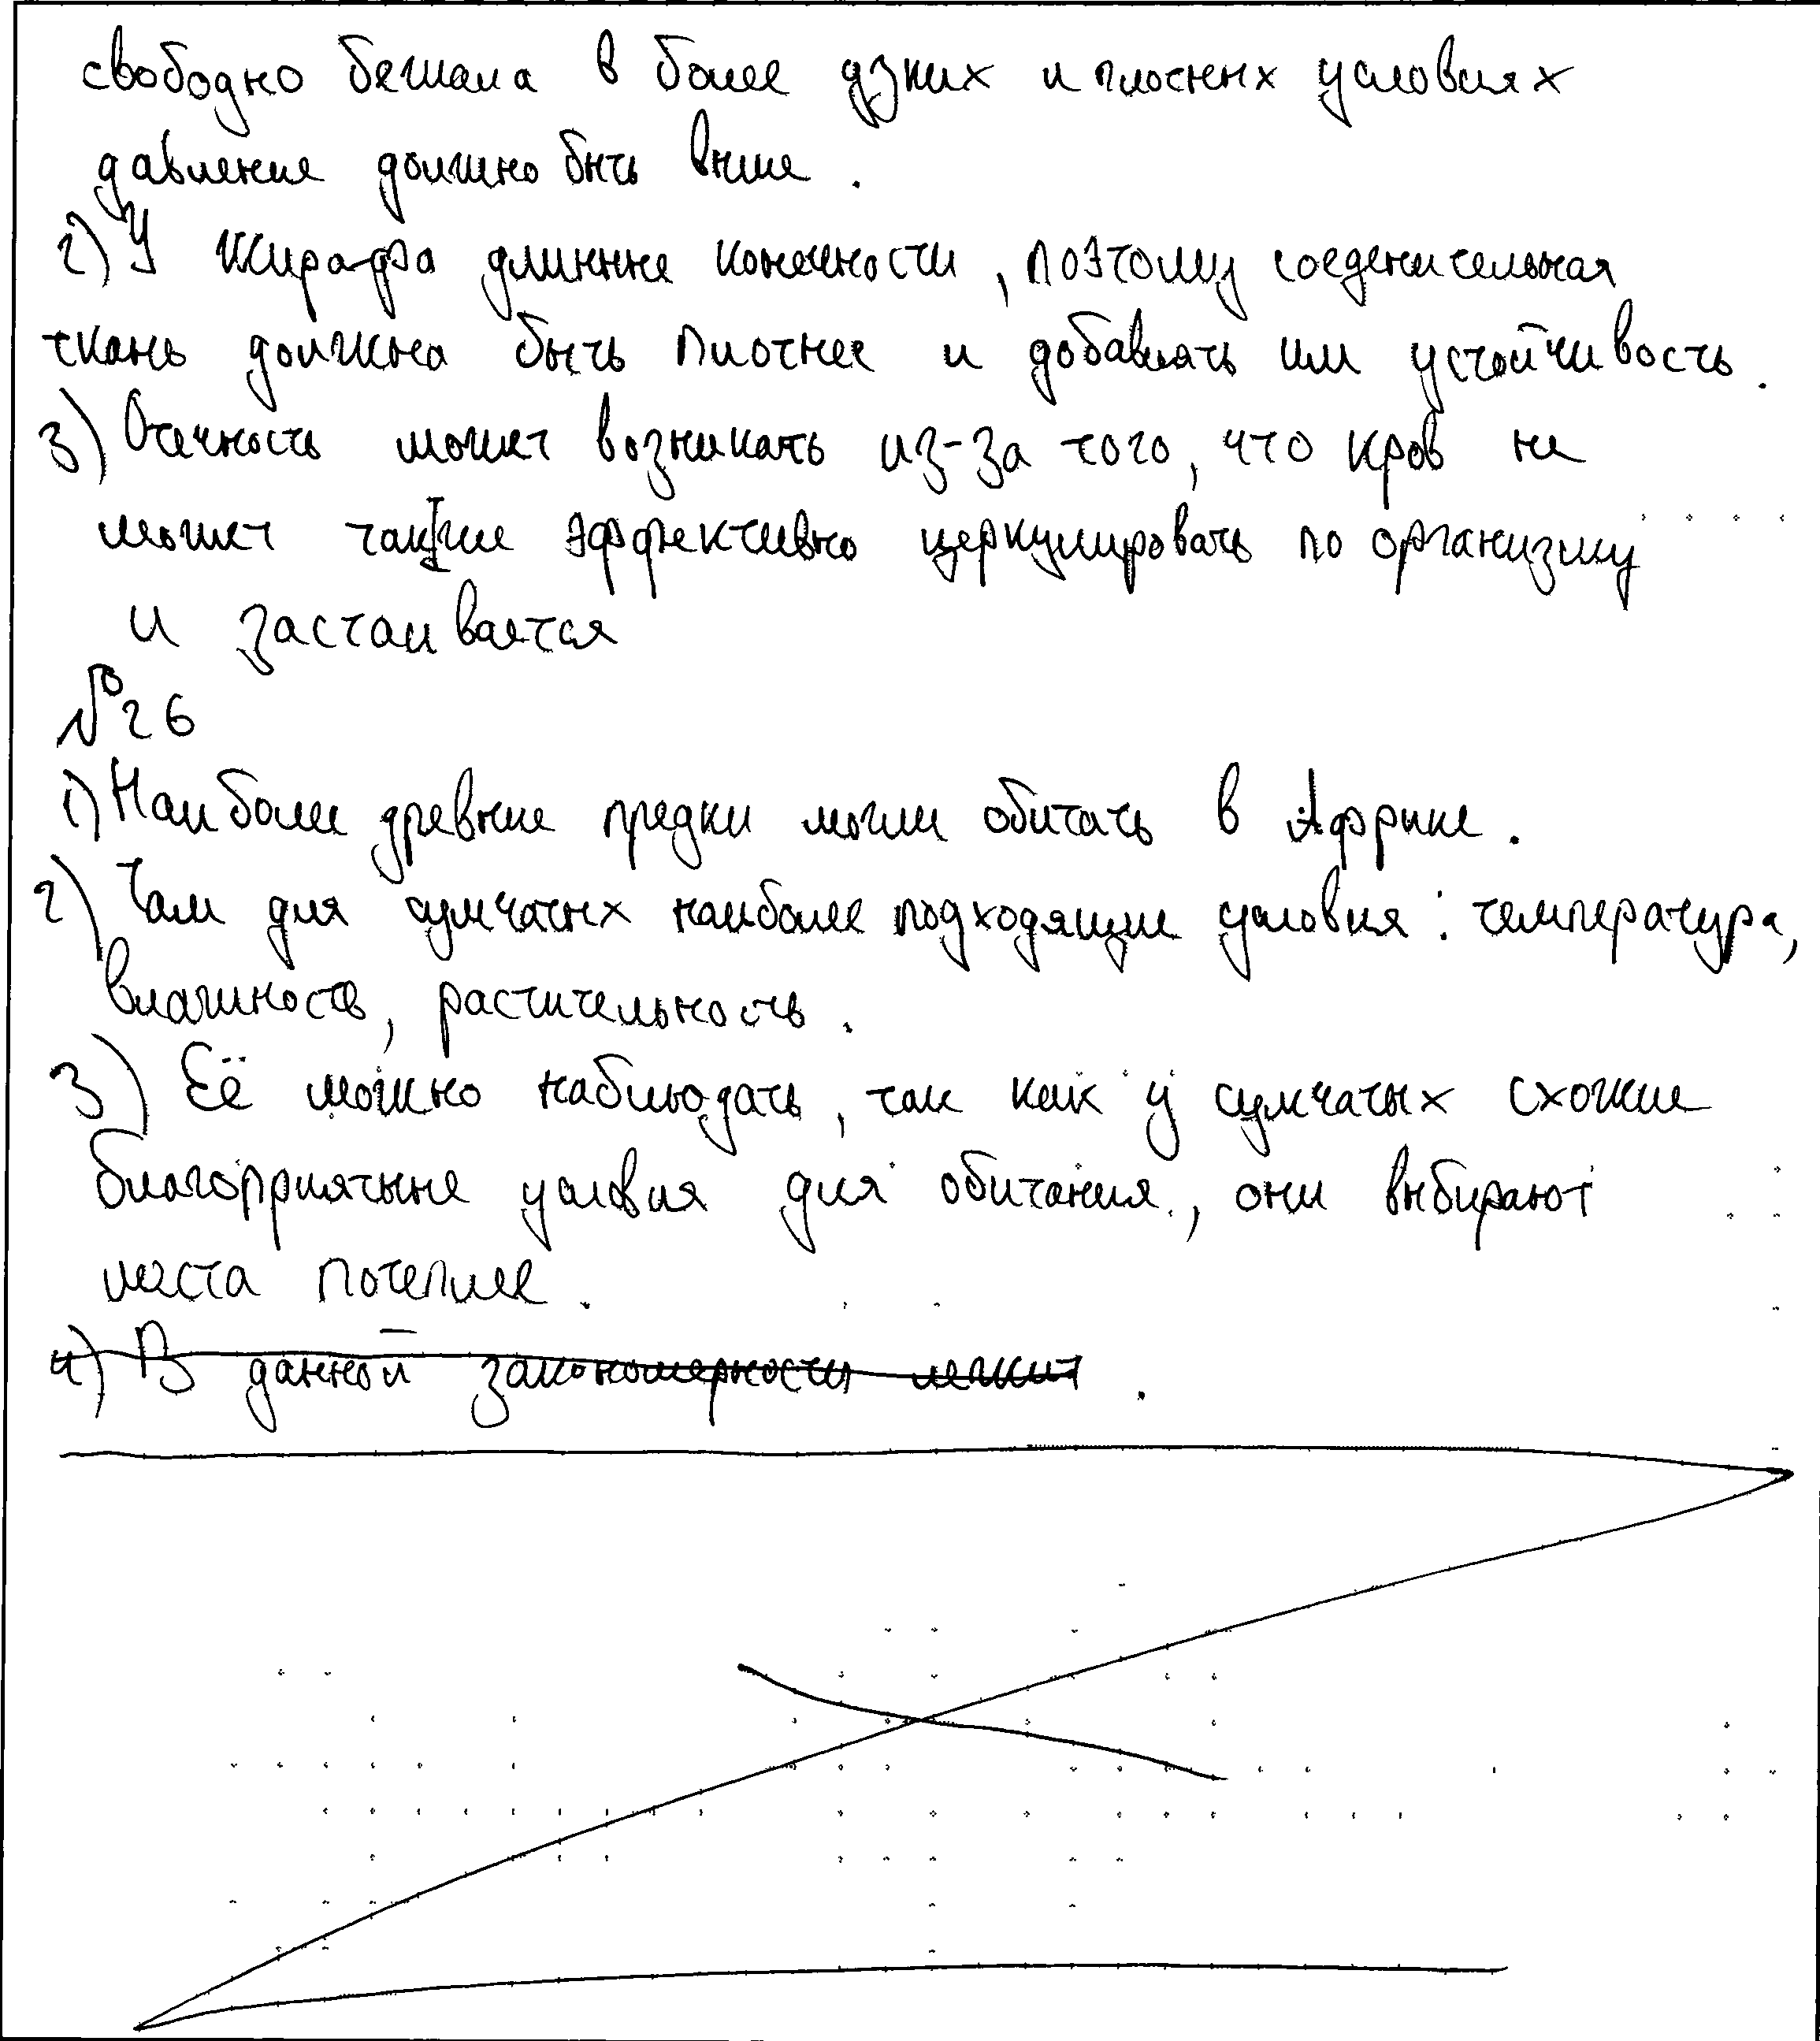 свободно бежала в более узких и плосных условиях
давление должно быть выше.
2) У жирафа длинные конечности, поэтому соеденительная
ткань должна быть плотнее и добавлять им устойчивость.
3) Отечность может возникать из-за того, что кров не
может также эффективно церкулировать по организму
и застаивается
№26
1) Наиболее древние предки могли обитать в Африке.
2) Там для сумчатых наиболее подходящие условия: температура,
влажность, растительность.
3) Её можно наблюдать, так как у сумчатых схожие
благоприятные условия для обитания, они выбирают
места потеплее.
4) В данной закономерности лежит.